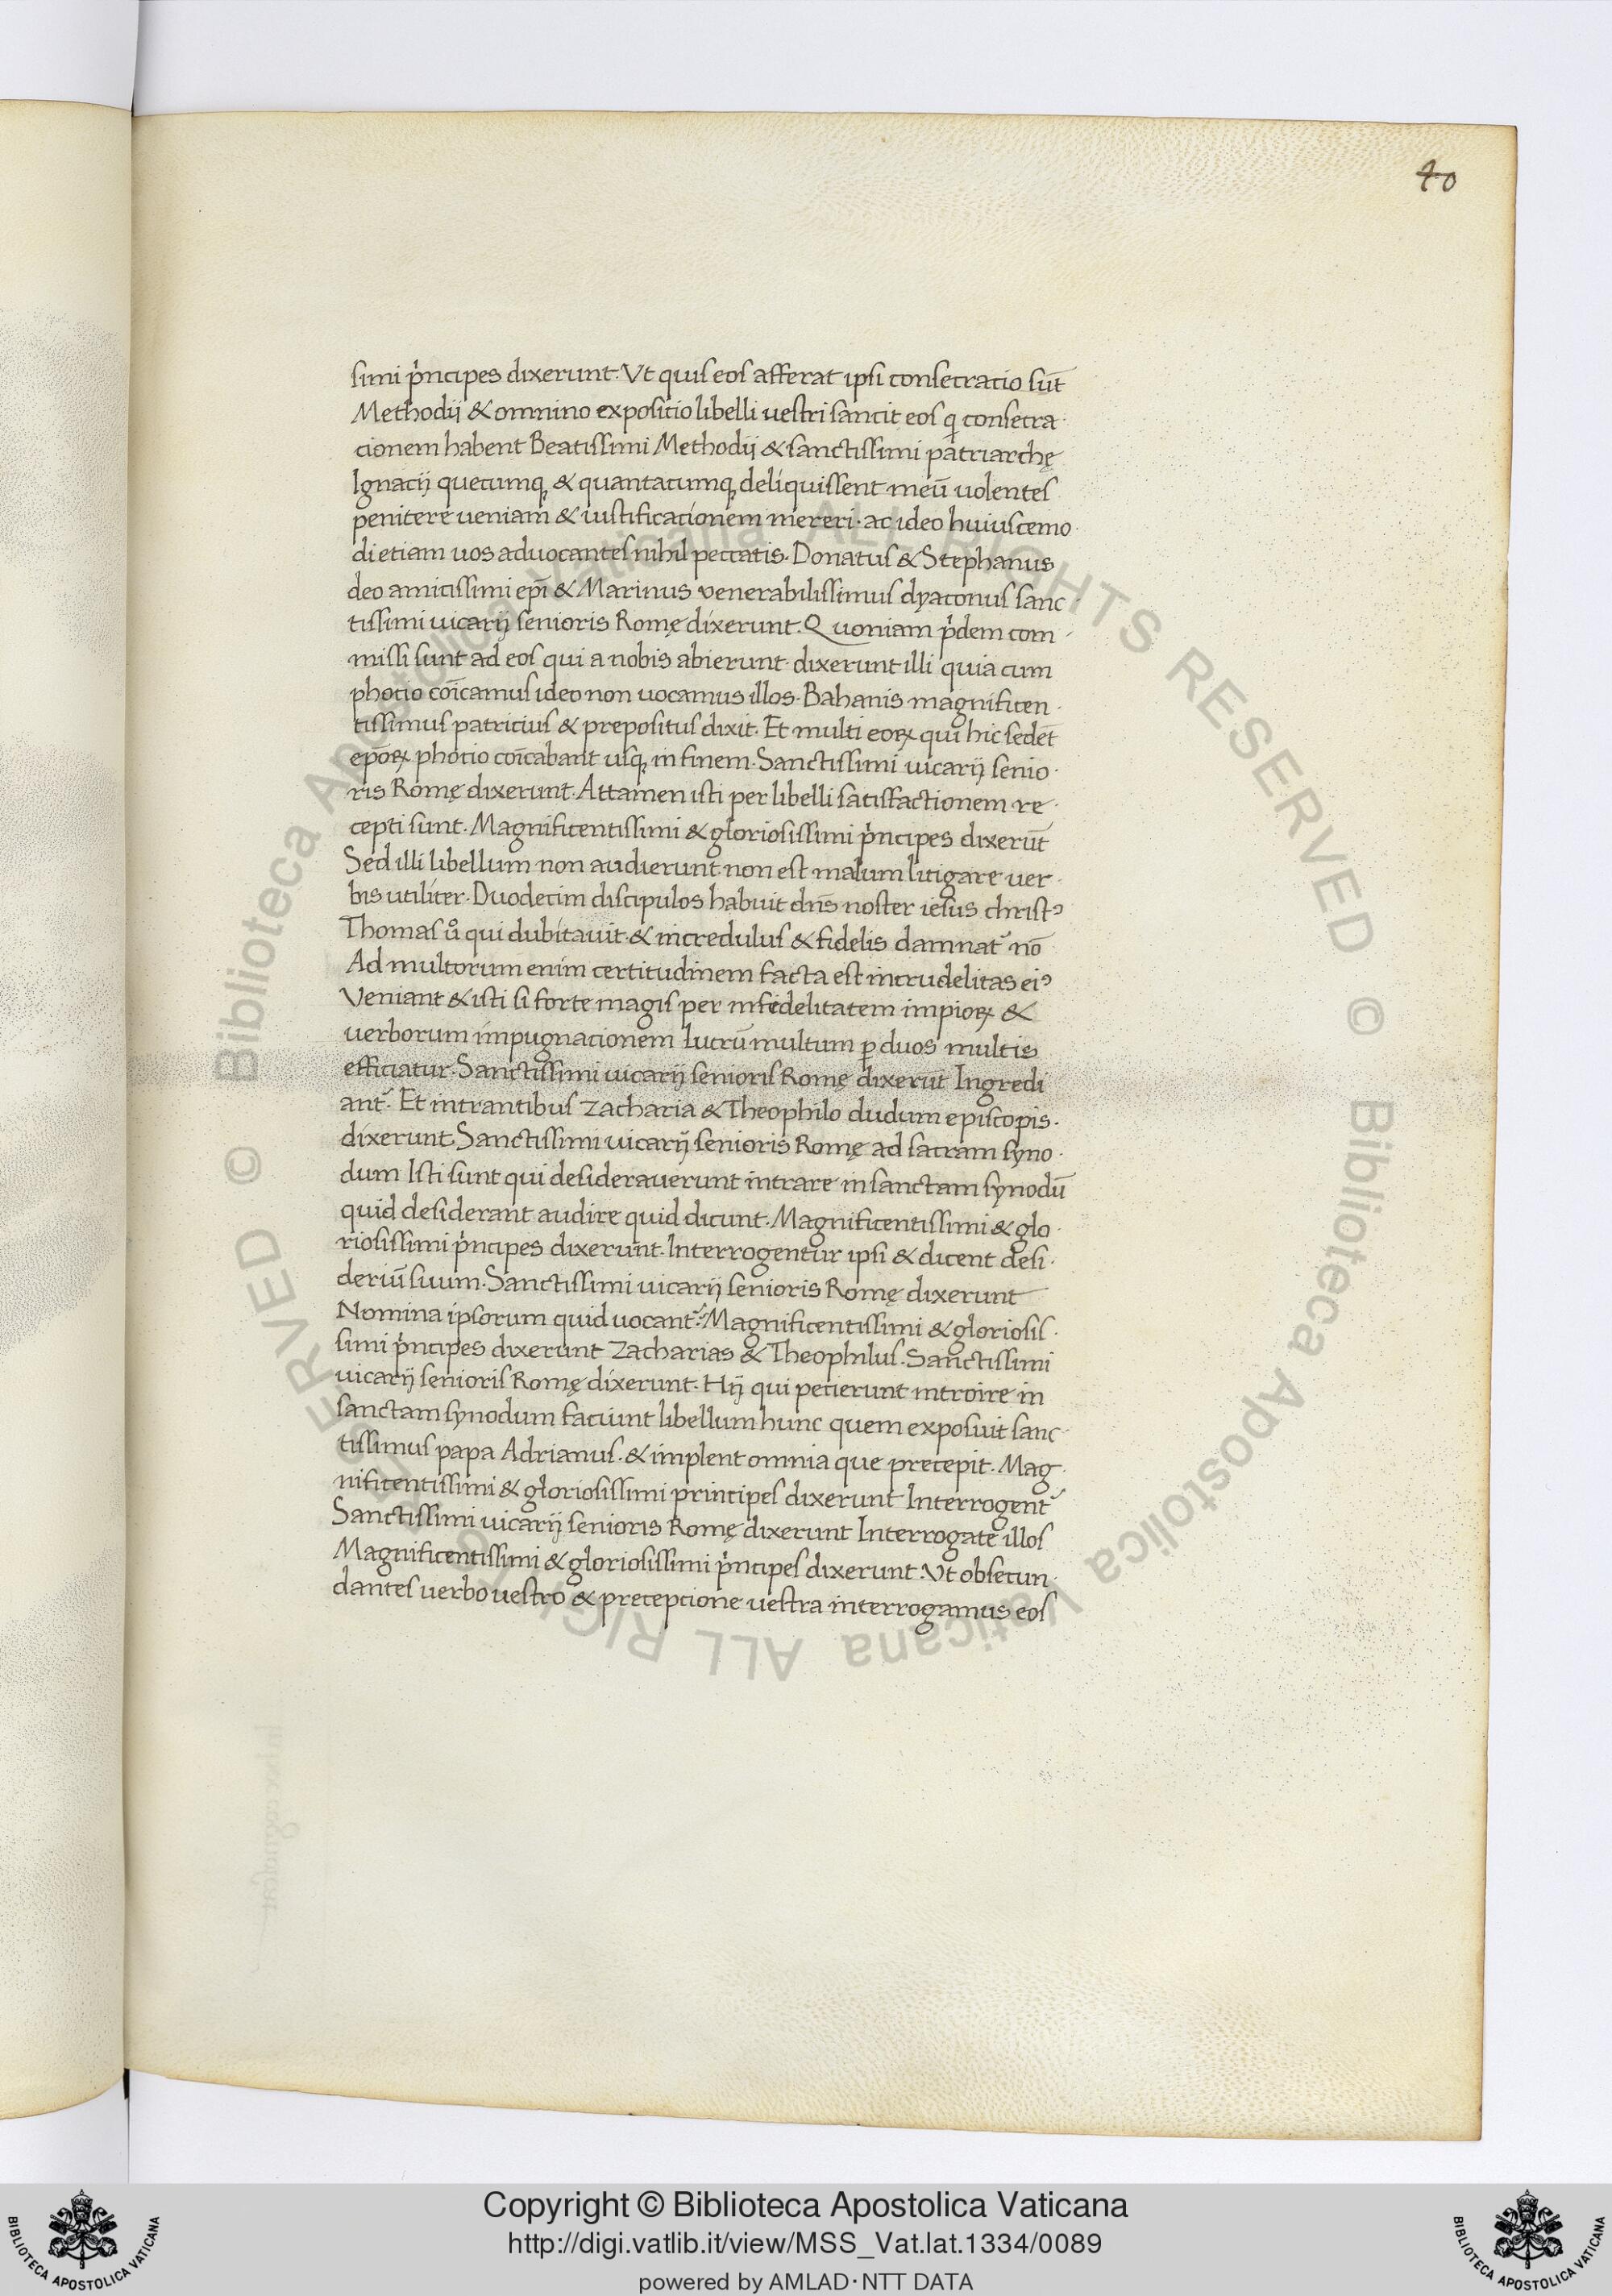 40
simi pͥncipes dixerunt. Vt quis eos afferat ipsi consecratio sūt
Methodij & omnino expositio libelli uestri sancit eos qͥ consecra-
cionem habent Beatissimi Methodij & sanctissimi patriarchę
Ignacij quecumq; & quantacumq; deliquissent meū uolentes
penitere ueniam & iustificacionem mereri. ac ideo huiuscemo-
di etiam uos aduocantes nihil peccatis. Donatus & Stephanus
deo amicissimi ep̄i & Marinus venerabilissimus dyaconus sanc-
tissimi uicarij senioris Romę dixerunt. Quoniam pͥdem com-
missi sunt ad eos qui a nobis abierunt. dixerunt illi quia cum
photio cōicamus ideo non uocamus illos. Bahanis magnificen-
tissimus patricius & prepositus dixit. Et multi eoꝝ qui hic sedēt
epōꝝ photio cōicabant usq; in finem. Sanctissimi uicarij senio-
ris Romę dixerunt. Attamen isti per libelli satisfactionem re-
cepti sunt. Magnificentissimi & gloriosissimi pͥncipes dixerūt
Sed illi libellum non audierunt. non est malum litigare uer-
bis utiliter. Duodecim discipulos habuit dn̄s noster iesus christꝰ
Thomas uͦ qui dubitauit. & incredulus & fidelis damnat᷑ nō
Ad multorum enim certitudinem facta est incrudelitas eiꝰ
Veniant & isti si forte magis per infidelitatem impioꝝ &
verborum impugnacionem lucrū multum ꝑ duos multis
efficiatur. Sanctissimi uicarij senioris Romę dixerūt Ingredi
ant᷑. Et intrantibus Zacharia & Theophilo dudum episcopis.
dixerunt Sanctissimi uicarij senioris Romę ad sacram syno-
dum Isti sunt qui desiderauerunt intrare in sanctam synodū
quid desiderant audire quid dicunt. Magnificentissimi & glo-
riosissimi pͥncipes dixerunt. Interrogentur ipsi & dicent desi-
deriū suum. Sanctissimi uicarij senioris Romę dixerunt
Nomina ipsorum quid uocant᷑. Magnificentissimi & gloriosis-
simi pͥncipes dixerunt Zacharias & Theophilus. Sanctissimi
uicarij senioris Romę dixerunt. Hij qui pecierunt introire in
sanctam synodum faciunt libellum hunc quem exposuit sanc-
tissimus papa Adrianus. & implent omnia que precepit. Mag-
nificentissimi & gloriosissimi principes dixerunt Interrogent᷑
Sanctissimi uicarij senioris Romę dixerunt Interrogate illos
Magnificentissimi & gloriosissimi pͥncipes dixerunt. Vt obsecun-
dantes uerbo uestro & precepcione uestra interrogamus eos
© Biblioteca Apostolica Vaticana ALL RIGHTS RESERVED © Biblioteca Apostolica Vaticana ALL RIGHTS RESERVED
Copyright © Biblioteca Apostolica Vaticana
http://digi.vatlib.it/view/MSS_Vat.lat.1334/0089
powered by AMLAD·NTT DATA
BIBLIOTECA APOSTOLICA VATICANA
BIBLIOTECA APOSTOLICA VATICANA